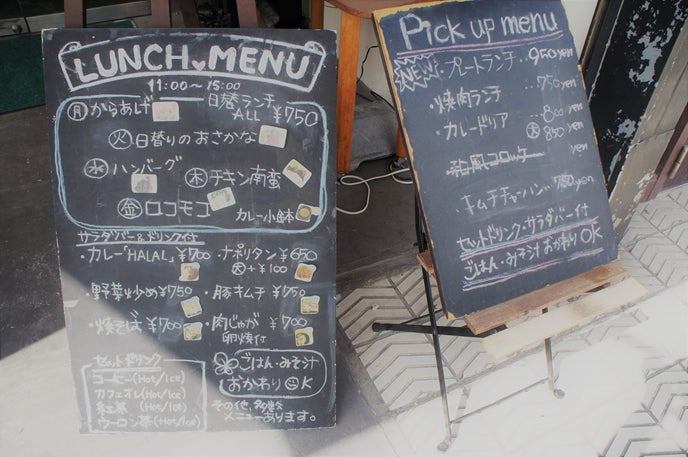 LUNCH♥MENU
11:00～15:00
日替ランチ
ALL ¥750
㊊からあげ
㊋日替りのおさかな
㊌ハンバーグ
㊍チキン南蛮
㊎ロコモコ
カレー小鉢付
サラダバー&ドリンク付
・カレー「HALAL」¥700
・ナポリタン¥650
㊛+¥100
・野菜炒め¥750
・豚キムチ¥750
・焼そば¥700
・肉じゃが ¥700
卵焼付
セットドリンク
コーヒー(Hot/Ice)
カフェオレ(Hot/Ice)
紅茶 (Hot/Ice)
ウーロン茶(Hot/Ice)
ごはん・みそ汁
おかわりOK
その他、多数
メニューあります。
Pick up menu
NEW! プレートランチ・・950yen
・焼肉ランチ 750yen
・カレードリア 800yen
大 850yen
・和風コロッケ yen
・キムチチャーハン・・750yen
セットドリンク・サラダバー付
ごはん・みそ汁おかわりOK